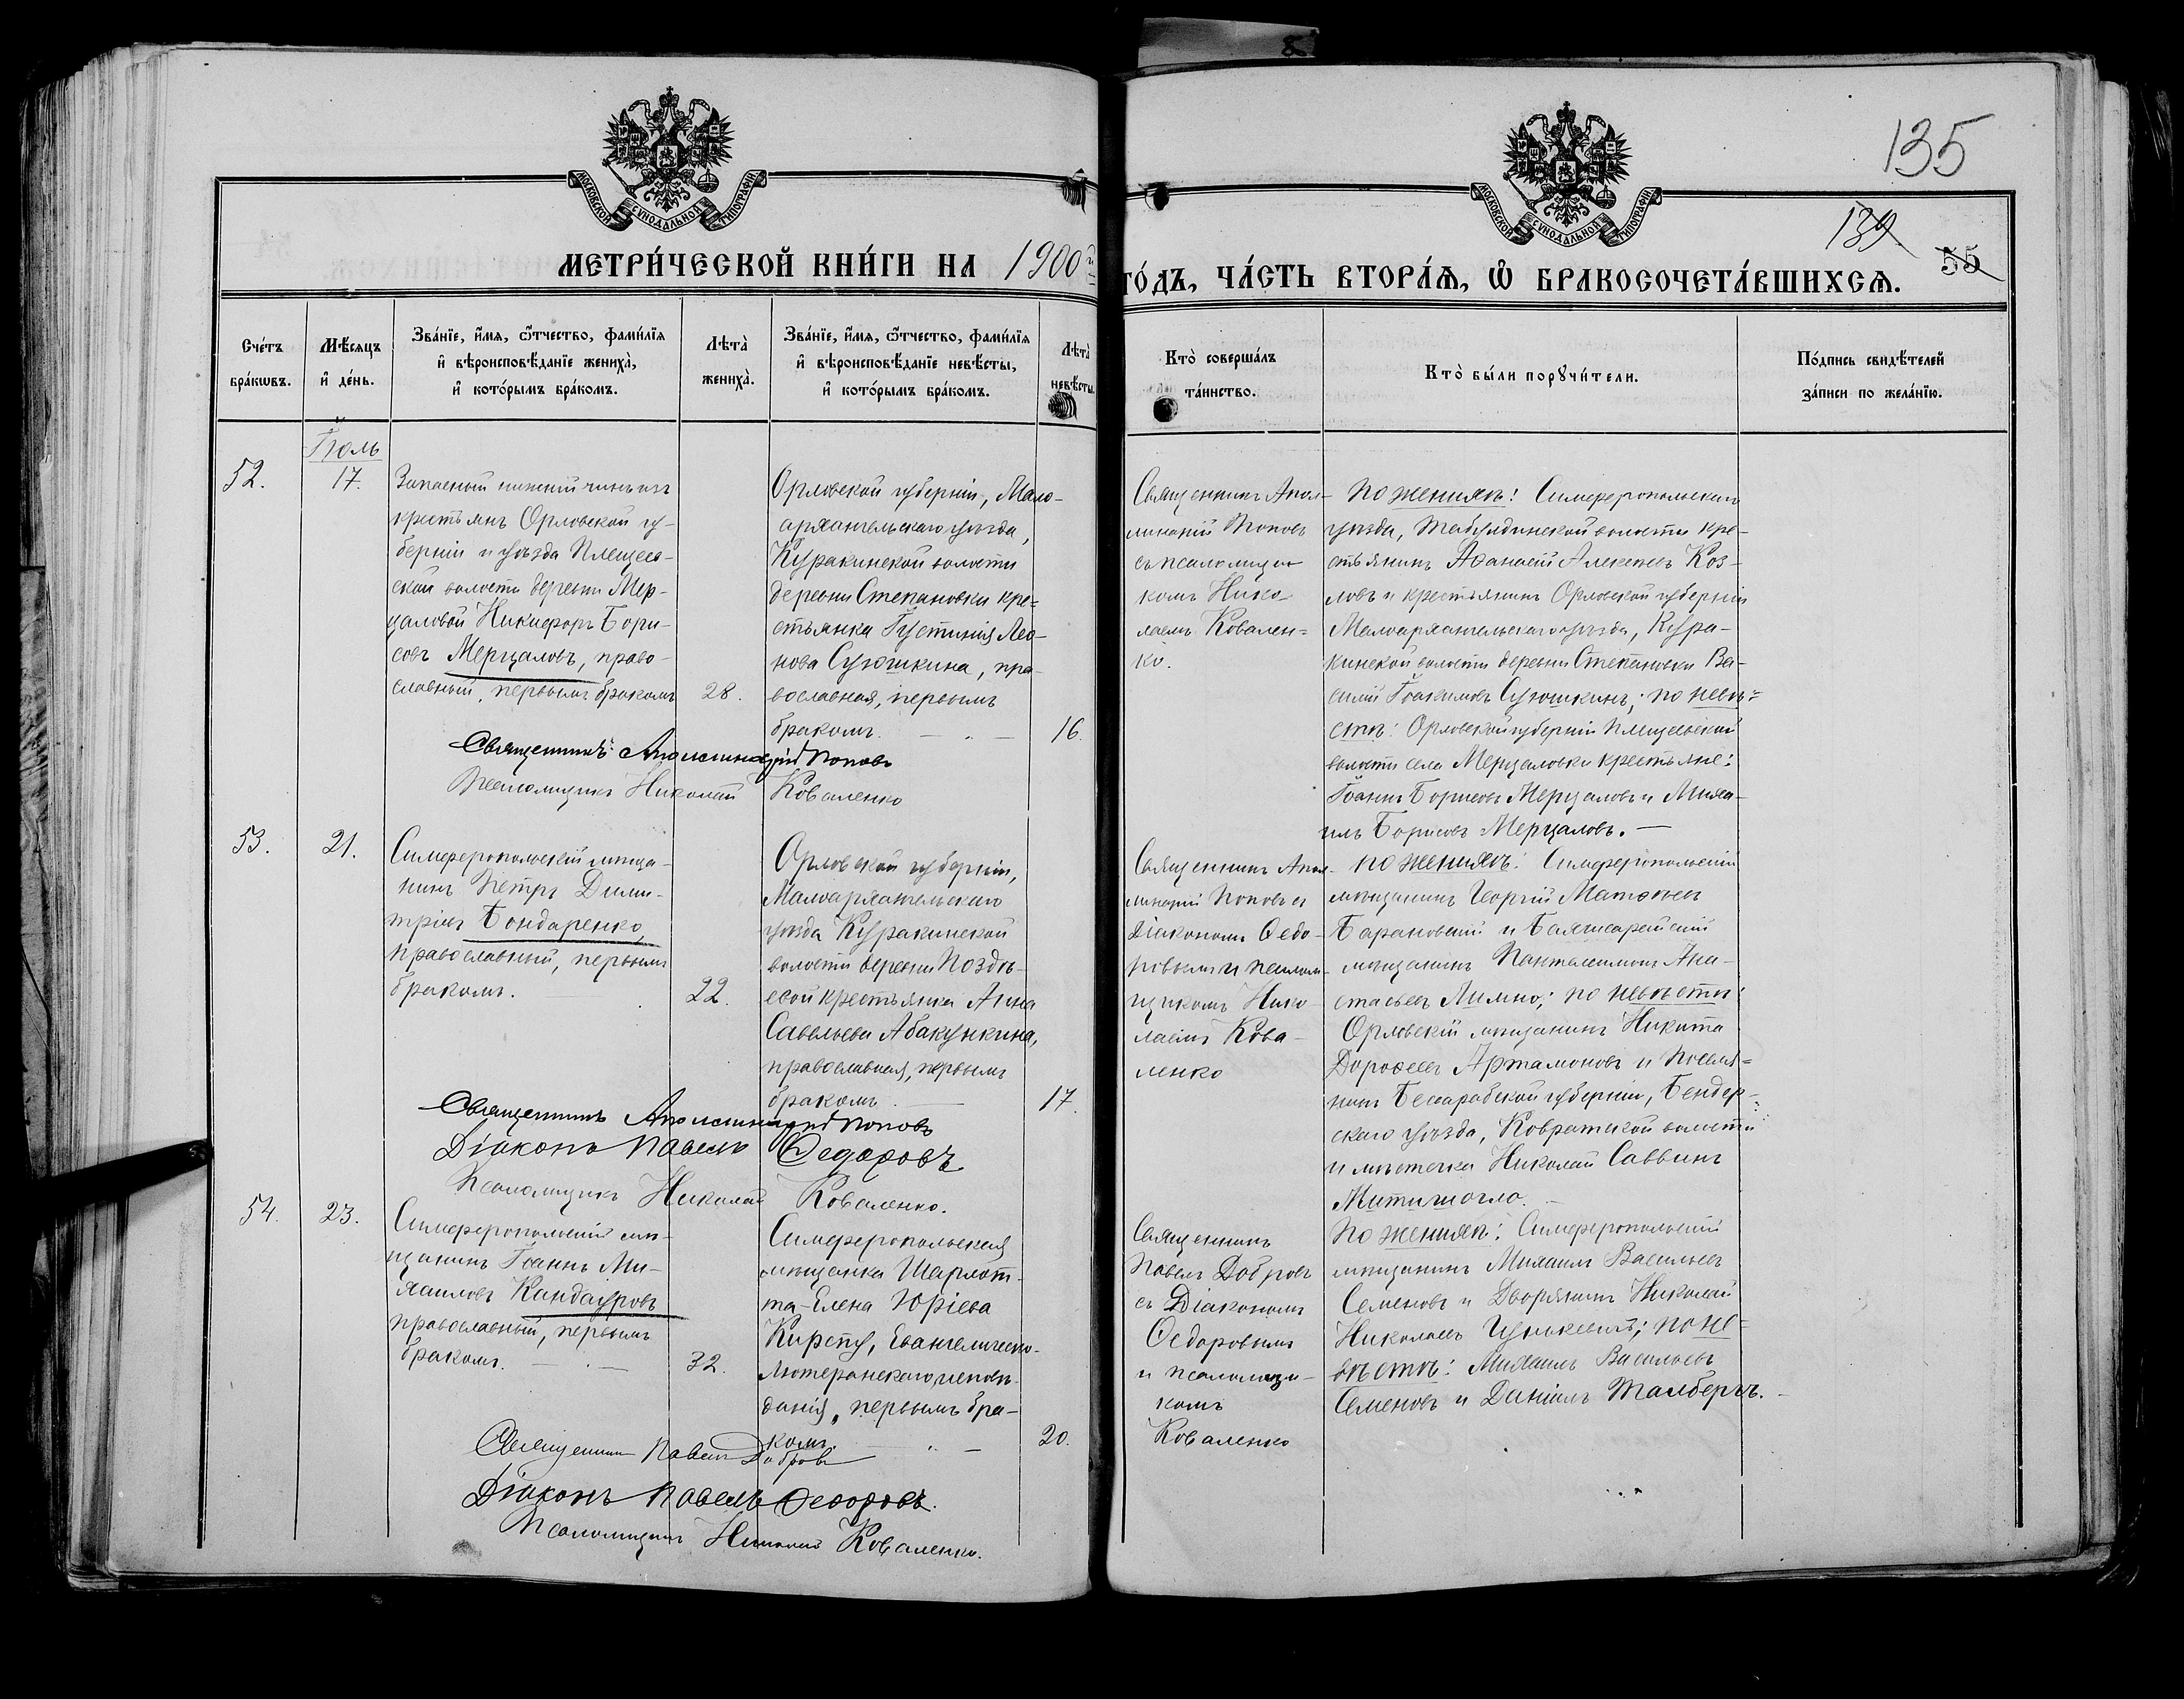 135
139
55
МОСКОВСКОЙ СУНОДАЛЬНОЙ ТИПОГРАФІИ
МОСКОВСКОЙ СУНОДАЛЬНОЙ ТИПОГРАФІИ
МЕТРИ́ЧЕСКОЙ КНИ́ГИ НА 1900й
ГО́ДЪ, ЧА́СТЬ ВТОРА́Ѧ, Ѡ҆ БРАКОСОЧЕТА́ВШИХСѦ.
Сче́тъ
бра́кѡвъ.
Мѣ́сѧцъ
и҆ де́нь.
Зва́нїе, и҆́мѧ, ѻ҆́тчество, фами́лїѧ
и҆ вѣроисповѣ́данїе жениха̀,
и҆ кото́рымъ бра́комъ.
Лѣта̀
жениха̀.
Зва́нїе, и҆́мѧ, ѻ҆́тчество, фами́лїѧ
и҆ вѣроисповѣ́данїе невѣ́сты,
и҆ кото́рымъ бра́комъ.
Лѣта̀
невѣ́сты.
Кто̀ соверша́лъ
та́инство.
Кто̀ бы́ли порꙋчи́тели.
По́дпись свидѣ́телей
за́писи по жела́нїю.
Іюль
52.
17.
Запасный нижній чинъ изъ
крестьянъ Орловской гу-
берніи и уѣзда Плещеев-
ской волости деревни Мер-
цаловой Никифоръ Бори-
совъ Мерцаловъ, право-
славный, первымъ бракомъ
28.
Орловской губерніи, Мало-
архангельскаго уѣзда,
Куракинской волости
деревни Степановки кре-
стьянка Іустинія Лео-
нова Сугошкина, пра-
вославная, первымъ
бракомъ.
16.
Священникъ Апол-
линарій Поповъ
съ псаломщи-
комъ Нико-
лаемъ Ковален-
ко.
По женихѣ: Симферопольскаго
уѣзда, Табулдинской волости кре-
стьянинъ Аѳанасій Алексѣевъ Коз-
ловъ и крестьянинъ Орловской губерніи
Малоархангельскаго уѣзда, Кура-
кинской волости деревни Степановки Ва-
силій Іоакимовъ Сугошкинъ; по невѣ-
стѣ: Орловской губерніи Плещеевской
волости села Мерцаловки крестьяне:
Іоаннъ Борисовъ Мерцаловъ и Миха-
илъ Борисовъ Мерцаловъ. —
Священникъ Аполлинарій Поповъ
Псаломщикъ Николай Коваленко
53.
21.
Симферопольскій мѣща-
нинъ Петръ Дими-
тріевъ Бондаренко,
православный, первымъ
бракомъ.
22.
Орловской губерніи,
Малоархангельскаго
уѣзда Куракинской
волости деревни Поздѣ-
евой крестьянка Анна
Савельева Абакункина,
православная, первымъ
бракомъ.
17.
Священникъ Апол-
линарій Поповъ съ
Діакономъ Ѳедо-
ровымъ и псалом-
щикомъ Нико-
лаемъ Кова-
ленко
По женихѣ: Симферопольскій
мѣщанинъ Георгій Матѳѣевъ
Барановскій и Бахчисарайскій
мѣщанинъ Пантелеимонъ Ана-
стасьевъ Лимно; по невѣстѣ:
Орловскій мѣщанинъ Никита
Дороѳеевъ Артамоновъ и поселя-
нинъ Бессарабской губерніи, Бендер-
скаго уѣзда, волости
и мѣстечка Николай Саввинъ
Митишогло.
Священникъ Аполлинарій Поповъ
Діаконъ Павелъ Ѳедоровъ.
Псаломщикъ Николай Коваленко.
54.
23.
Симферопольскій мѣ-
щанинъ Іоаннъ Ми-
хаиловъ Кандауровъ
православный, первымъ
бракомъ.
32.
Симферопольская
мѣщанка Шарлот-
та-Елена Юріева
Евангелическо-
Лютеранскаго исповѣ-
данія, первымъ бра-
комъ.
20.
Священникъ
Павелъ Добровъ
съ Діакономъ
Ѳедоровымъ
и псаломщи-
комъ
Коваленко
По женихѣ: Симферопольскій
мѣщанинъ Михаилъ Васильевъ
Семеновъ и Дворянинъ Николай
Николаевъ по не-
вѣстѣ: Михаилъ Васильевъ
Семеновъ и Даніилъ Тальбергъ.
Священникъ Павелъ Добровъ
Діаконъ Павелъ Ѳедоровъ.
Псаломщикъ Николай Коваленко.